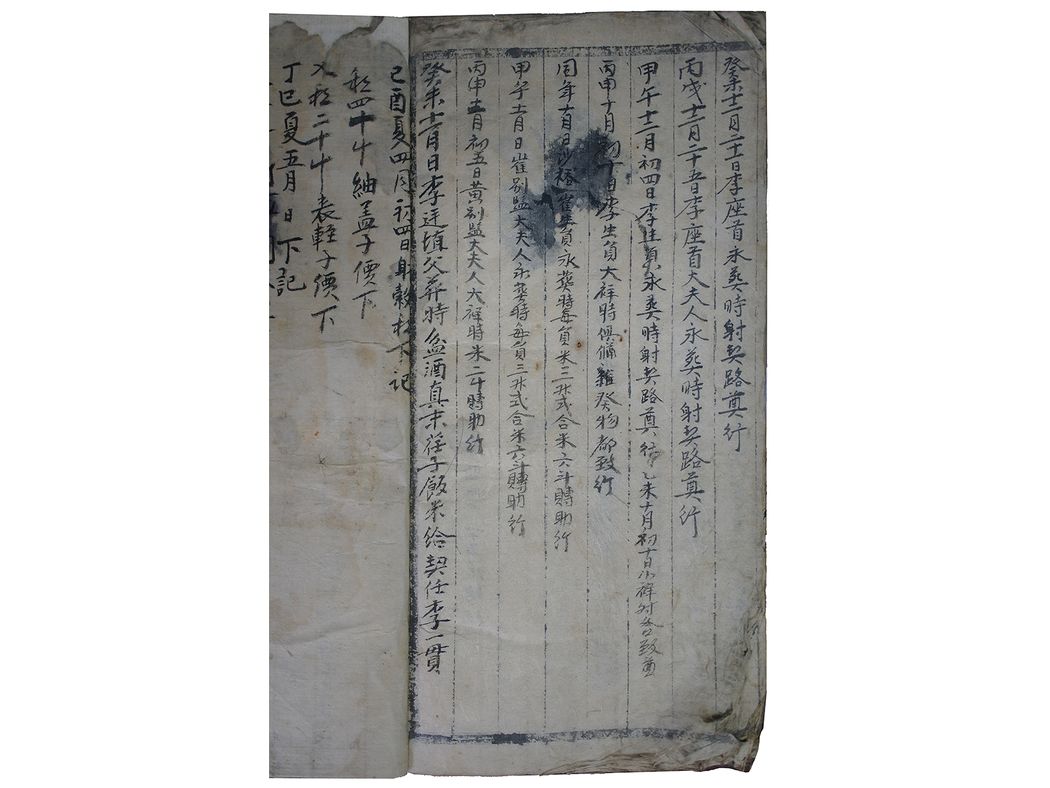 癸未十一月二十一日李座首永葬時射契路奠行
丙戌十二月二十五日李座首大夫人永葬時射契路奠行
甲午十二月初四日李生員永葬時射契路奠行乙未十月初十日小祥時各致奠
丙申十月初十日李生員大祥時俱備雜癸物都致行
同年十月日沙 崔生員永葬時每員米三升式合米六斗賻助行
甲子十一月日崔別監大夫人永葬時每員三升式合米六斗賻助行
丙申十一月初五日黃別監大夫人大祥時米二斗賻助行
癸未十一月日李廷塤父葬時盆酒真末荏子飯米給契任李一貫
己酉夏四月初四日射穀村下記
租四十斗紬盖子價下
又租二十斗表輕子價下
丁巳夏五月日下記